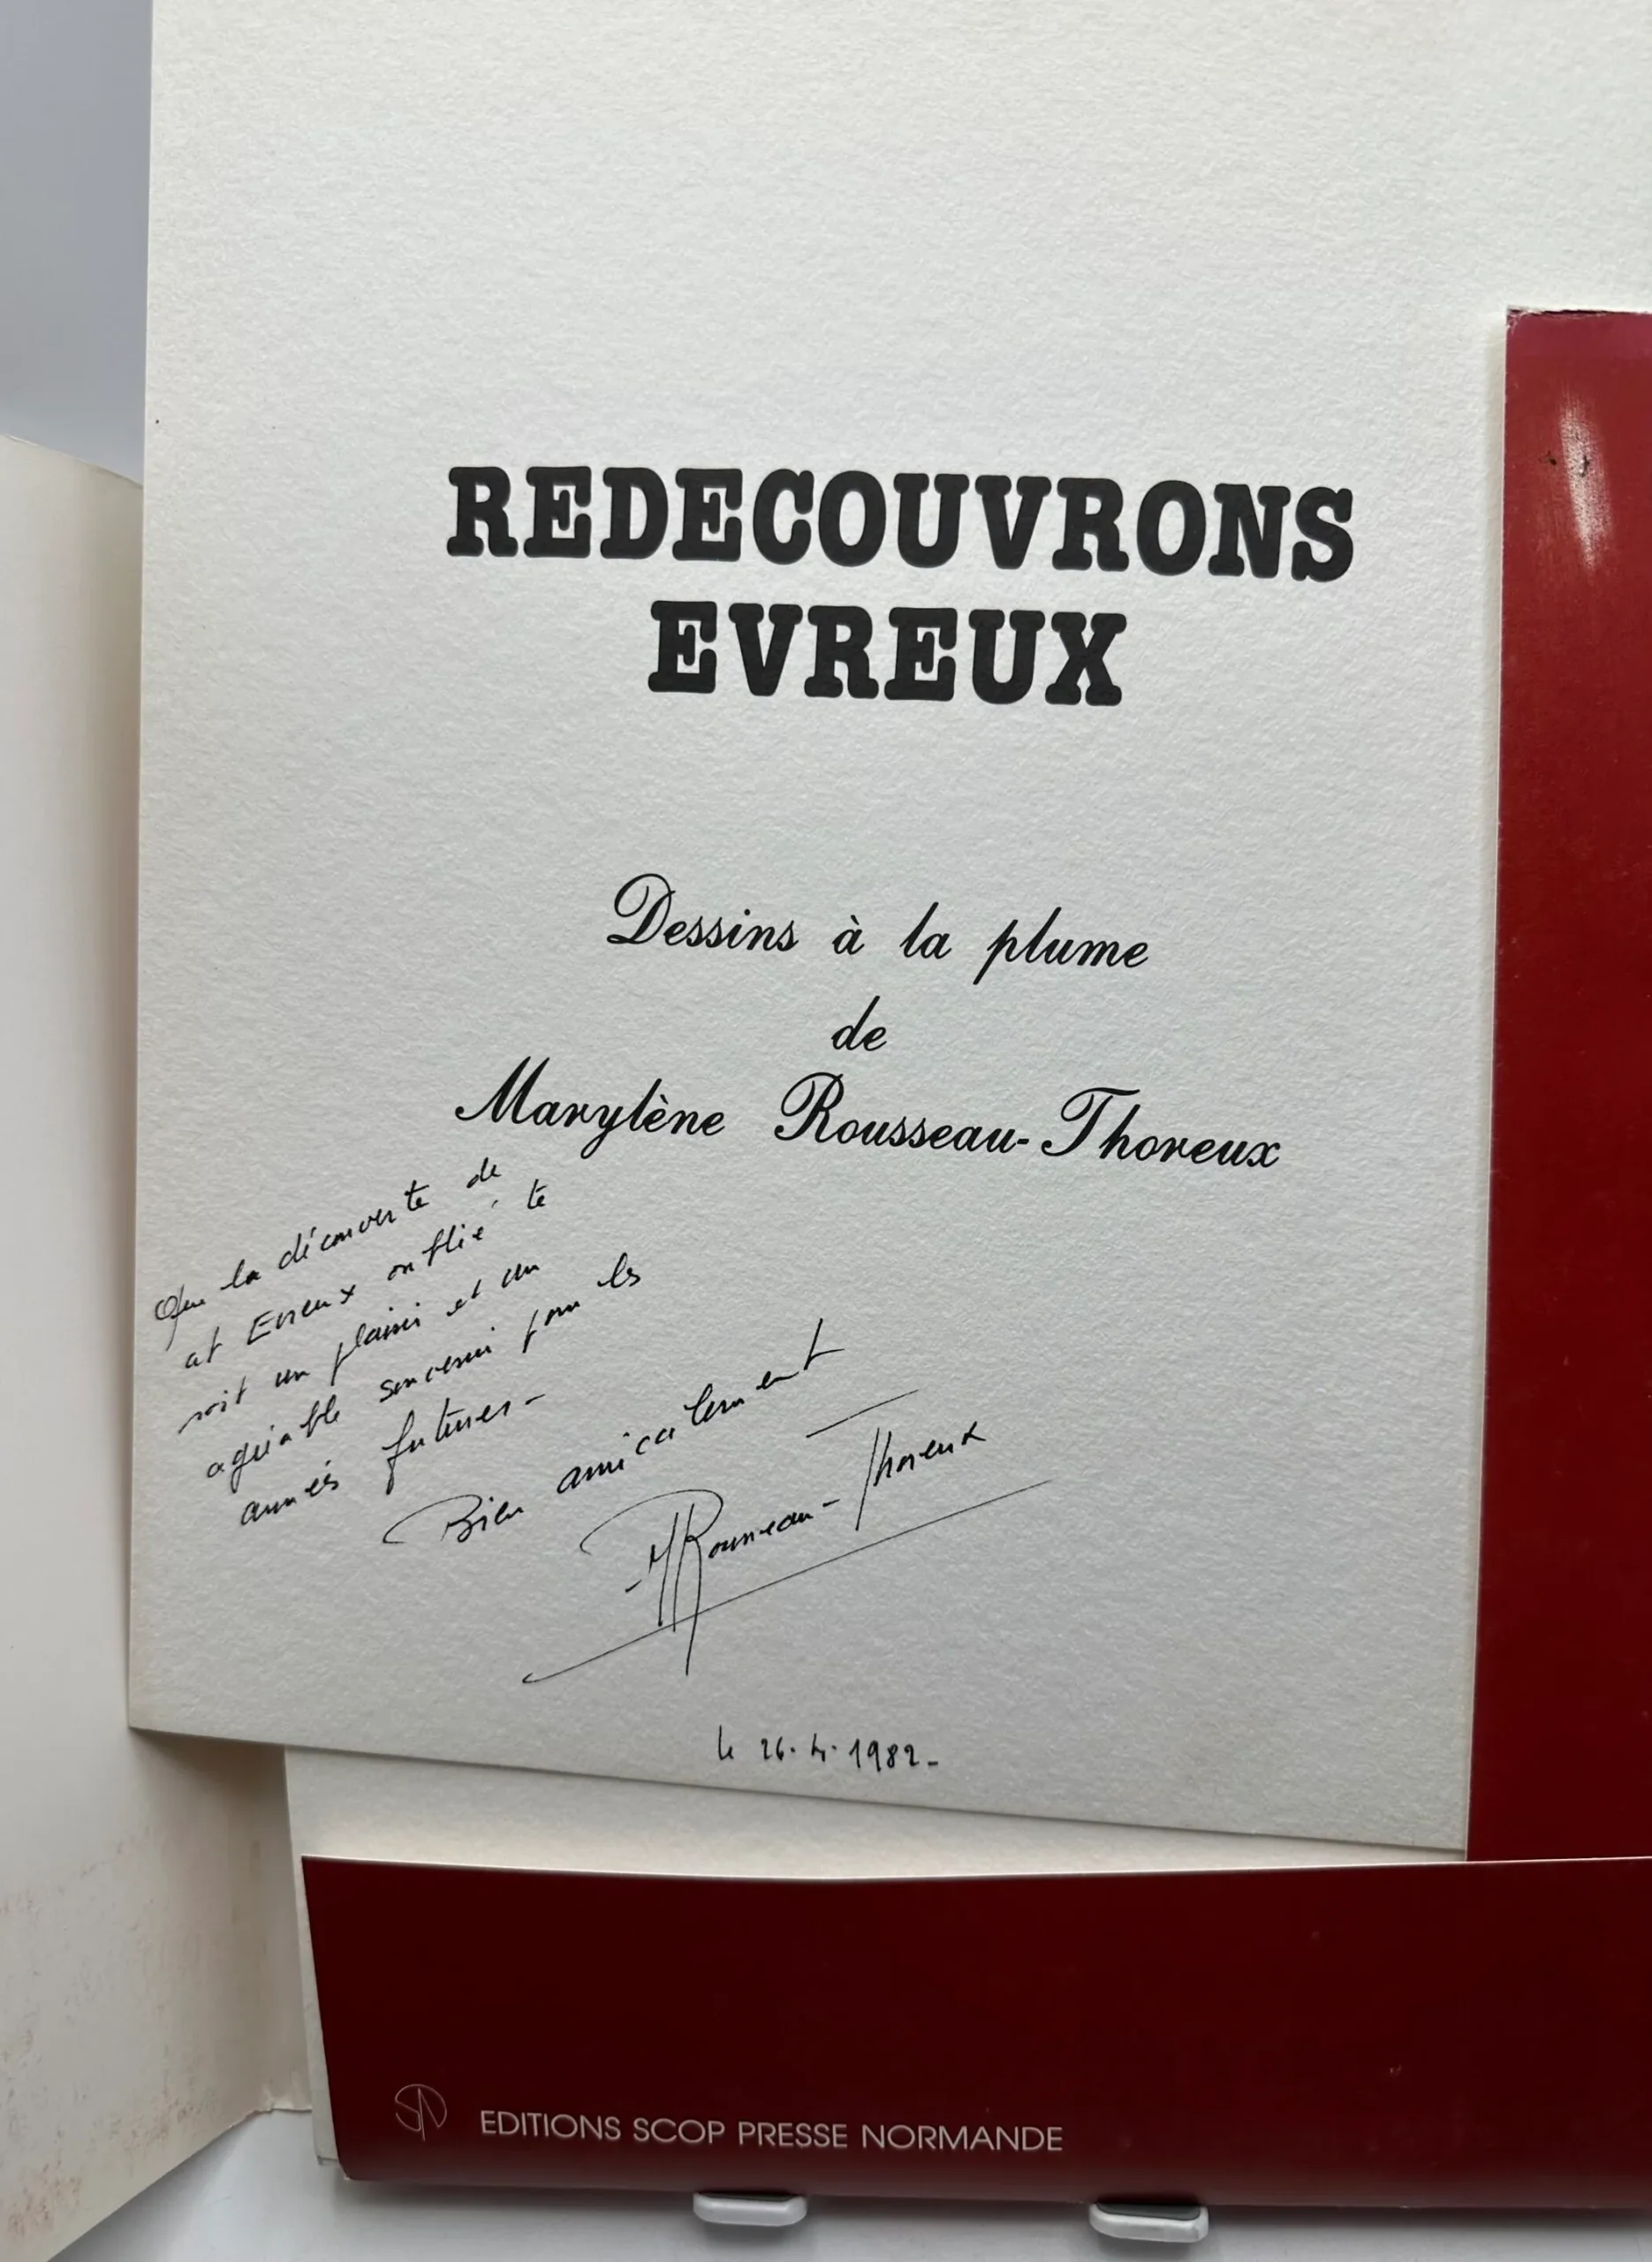 REDECOUVRONS
EVREUX
Dessins à la plume
de
Marylène Rousseau-Thoreux
Que la découverte de
cet Evreux oublié te
soit un plaisir et un
agréable souvenir pour les
années futures-
Bien amicalement
MRousseau-Thoreux
le 26.4.1982-
EDITIONS SCOP PRESSE NORMANDE